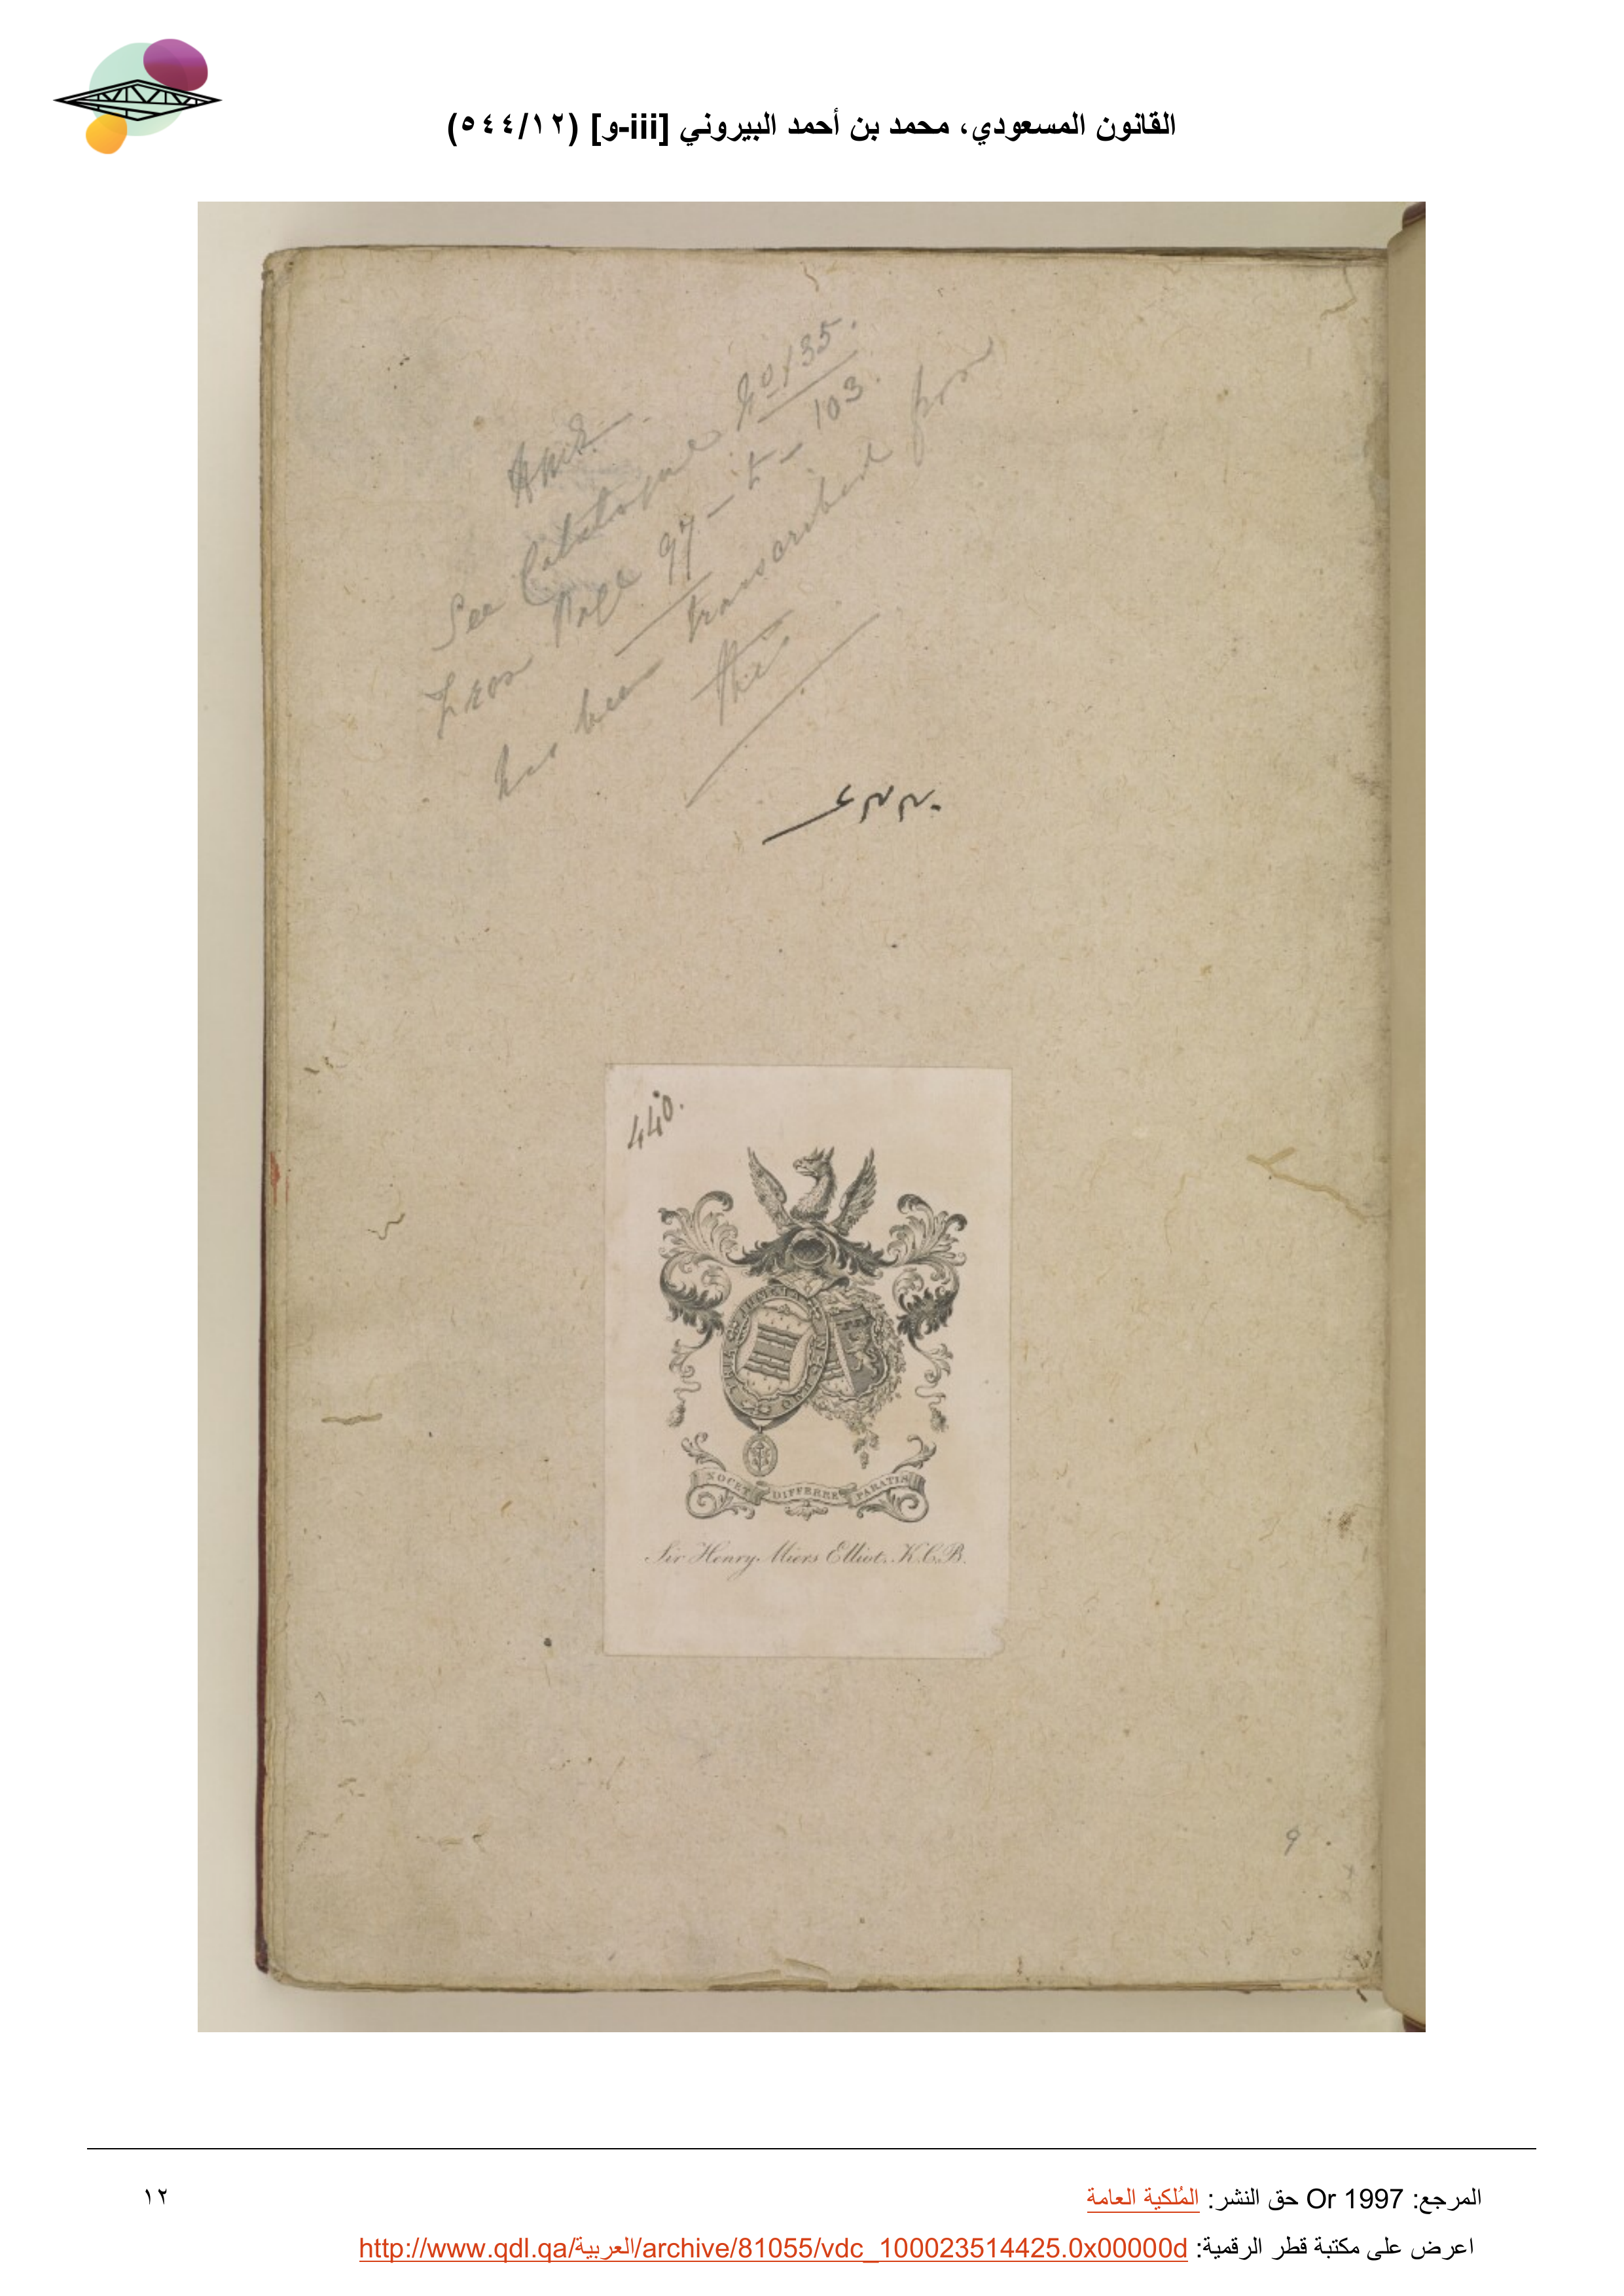 القانون المسعودي، محمد بن أحمد البيروني [iii-و] (٥٤٤/١٢)
See Catalogue No 135.
From Page 97 - to - 103.
has been transcribed from
this
440.
NOCET DIFFERRE PARATIS
Sir Henry Miers Elliot. K.C.B.
9
المرجع: Or 1997 حق النشر: المُلكية العامة
١٢
اعرض على مكتبة قطر الرقمية: http://www.qdl.qa/العربية/archive/81055/vdc_100023514425.0x00000d